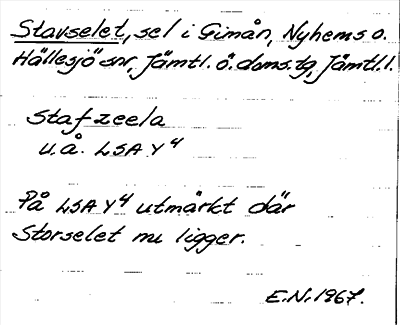 Stavselet, sel i Gimån, Nyhems o.
Hällesjö snr, Jämtl. ö. doms. tg, Jämtl. l.
Stafzeela
u.å. LSA Y4
På LSA Y4 utmärkt där
Storselet nu ligger.
E.N. 1967.